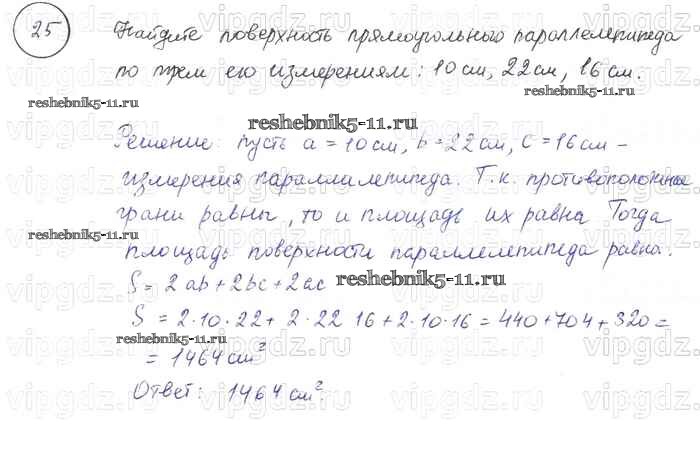 25
Найдите поверхность прямоугольного параллелепипеда
по трем его измерениям: 10 см, 22 см, 16 см.
reshebnik5-11.ru
reshebnik5-11.ru
reshebnik5-11.ru
Решение: пусть a = 10 см, b = 22 см, c = 16 см –
измерения параллилепипеда. Т.к. противоположные
грани равны, то и площадь их равна Тогда
reshebnik5-11.ru
площадь поверхности параллелепипеда равна:
S = 2ab + 2bc + 2ac
reshebnik5-11.ru
S = 2·10·22 + 2·22 16 + 2·10·16 = 440 + 704 + 320 =
reshebnik5-11.ru
= 1464 см²
Ответ: 1464 см².
vipgdz.ru vipgdz.ru vipgdz.ru vipgdz.ru